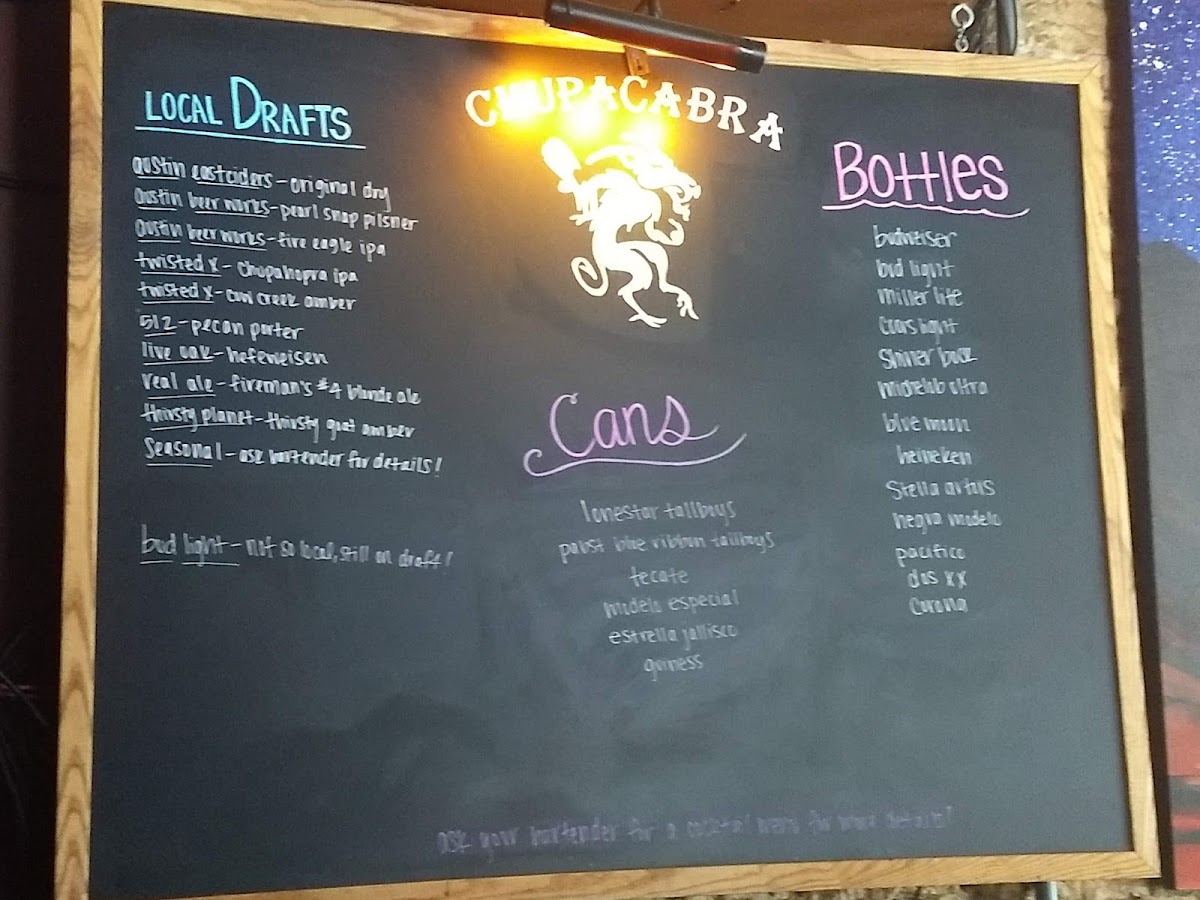 CHUPACABRA
LOCAL DRAFTS
austin eastciders - original dry
austin beer works - pearl snap pilsner
austin beer works - fire eagle ipa
twisted x - chupahopra ipa
twisted x - cow creek amber
512 - pecan porter
live oak - hefeweisen
real ale - fireman's #4 blonde ale
thirsty planet - thirsty goat amber
Seasonal - ask bartender for details!
bud light - not so local, still on draft!
Cans
lonestar tallboys
pabst blue ribbon tallboys
tecate
modelo especial
estrella jallisco
guiness
Bottles
budweiser
bud light
miller lite
Coors light
Shiner bock
michelob ultra
blue moon
heineken
Stella artois
negra modelo
pacifico
dos xx
Corona
ask your bartender for a cocktail menu for more details!